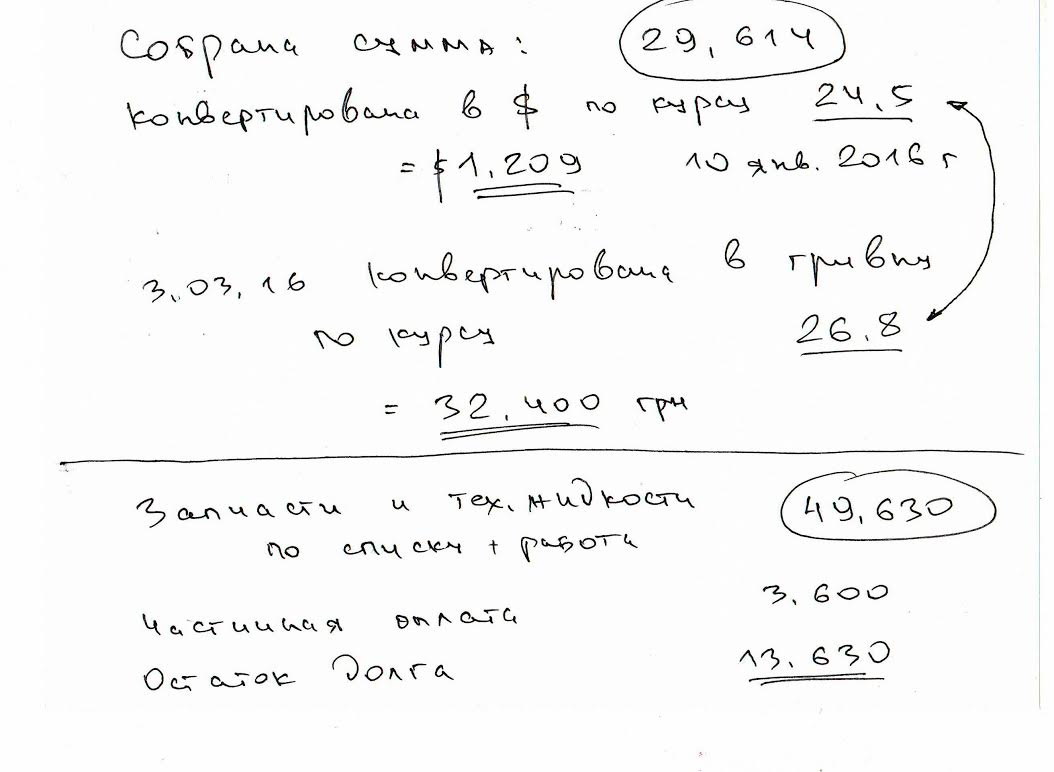 Собрана сумма: 29,614
конвертирована в $ по курсу 24,5
= $1,209 10 янв. 2016 г
3.03.16 конвертирована в гривну
по курсу 26.8
= 32,400 грн
Запчасти и тех. жидкости 49,630
по списку + работа
Частичная оплата 3.600
Остаток долга 13.630